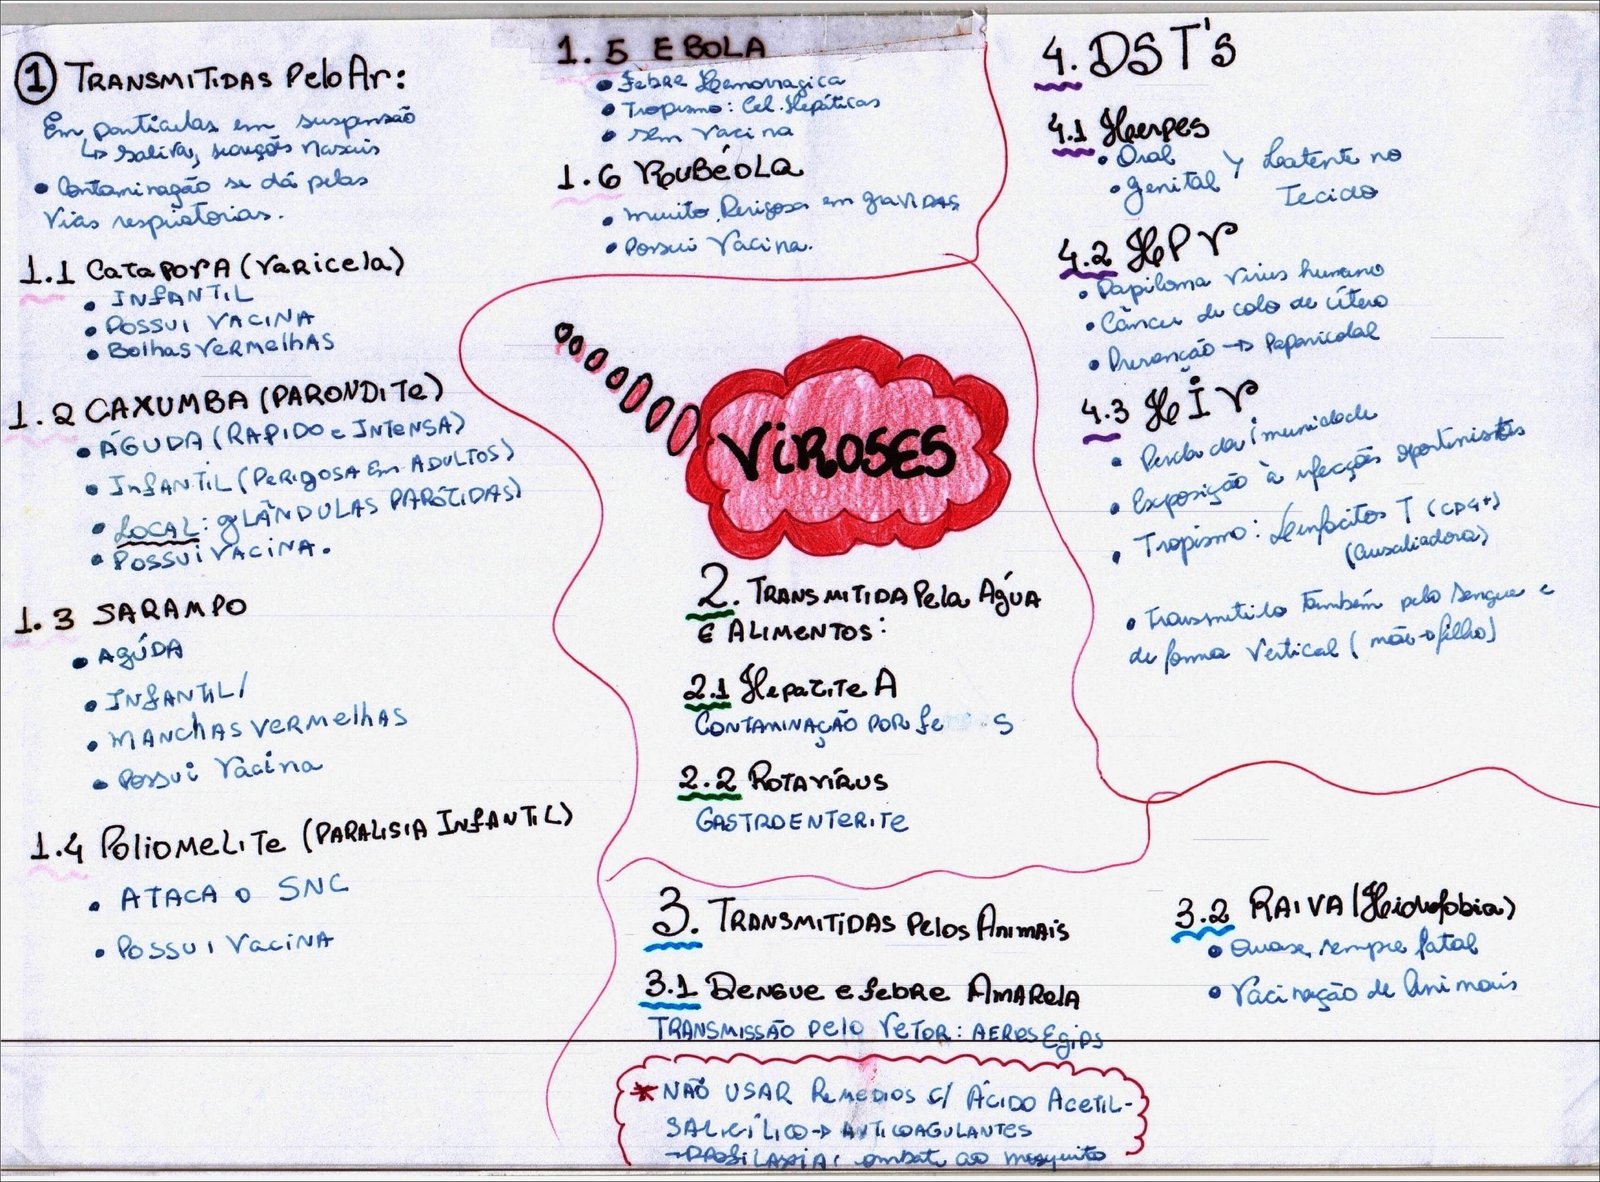 1 TRANSMITIDAS Pelo Ar:
Em partículas em suspensão
↳ Saliva, secreções nasais
• Contaminação se dá pelas
Vias respiratórias.
1.1 CATAPORA (VARICELA)
• INFANTIL
• POSSUI VACINA
• Bolhas VERMELHAS
1.2 CAXUMBA (PARONDITE)
• ÁGUDA (RAPIDO e INTENSA)
• INFANTIL (PERIGOSA Em ADULTOS)
• LOCAL: GLÂNDULAS PARÓTIDAS)
• POSSUI VACINA.
1.3 SARAMPO
• AGÚDA
• INFANTIL/
• MANCHAS VERMELHAS
• Possui Vacina
1.4 POLIOMELITE (PARALISIA INFANTIL)
• ATACA O SNC
• POSSUI VACINA
1.5 EBOLA
• Febre Hemorragica
• Tropismo: Cel. Hepáticas
• Sem Vacina
1.6 RoUBéOLA
• Muito Perigosa em gravidas
• Possui Vacina.
VIROSES
2. TRANSMITIDA Pela AgUA
E ALIMENTOS:
2.1 Hepatite A
CONTAMINAÇÃO POR fe S
2.2 ROTAVÍRUS
GASTROENTERITE
3. TRANSMITIDAS Pelos ANIMAIS
3.1 DENGUE e febre AMARELA
TRANSMISSÃO pelo VETOR: AERES EgiPS
* NÃO USAR REMEDIOS C/ ÁCIDO ACETIL-
SALICÍLICO → ANTICOAGULANTES
→ PROFILAXIA: combate ao mosquito
3.2 RAIVA (Hidrofobia)
• Quase sempre fatal
• Vacinação de Animais
4. DST'S
4.1 Herpes
• Oral
• genital } Latente no
Tecido
4.2 HPV
• Papiloma Virus humano
• Câncer de colo de útero
• Prevenção → Papanicolal
4.3 HIV
• Perda da imunidade
• Exposição à infecções oportunistas
• Tropismo: Linfocitos T (CD4+)
(auxiliadora)
• Transmitido também pelo sangue e
de forma Vertical (mãe→filho)